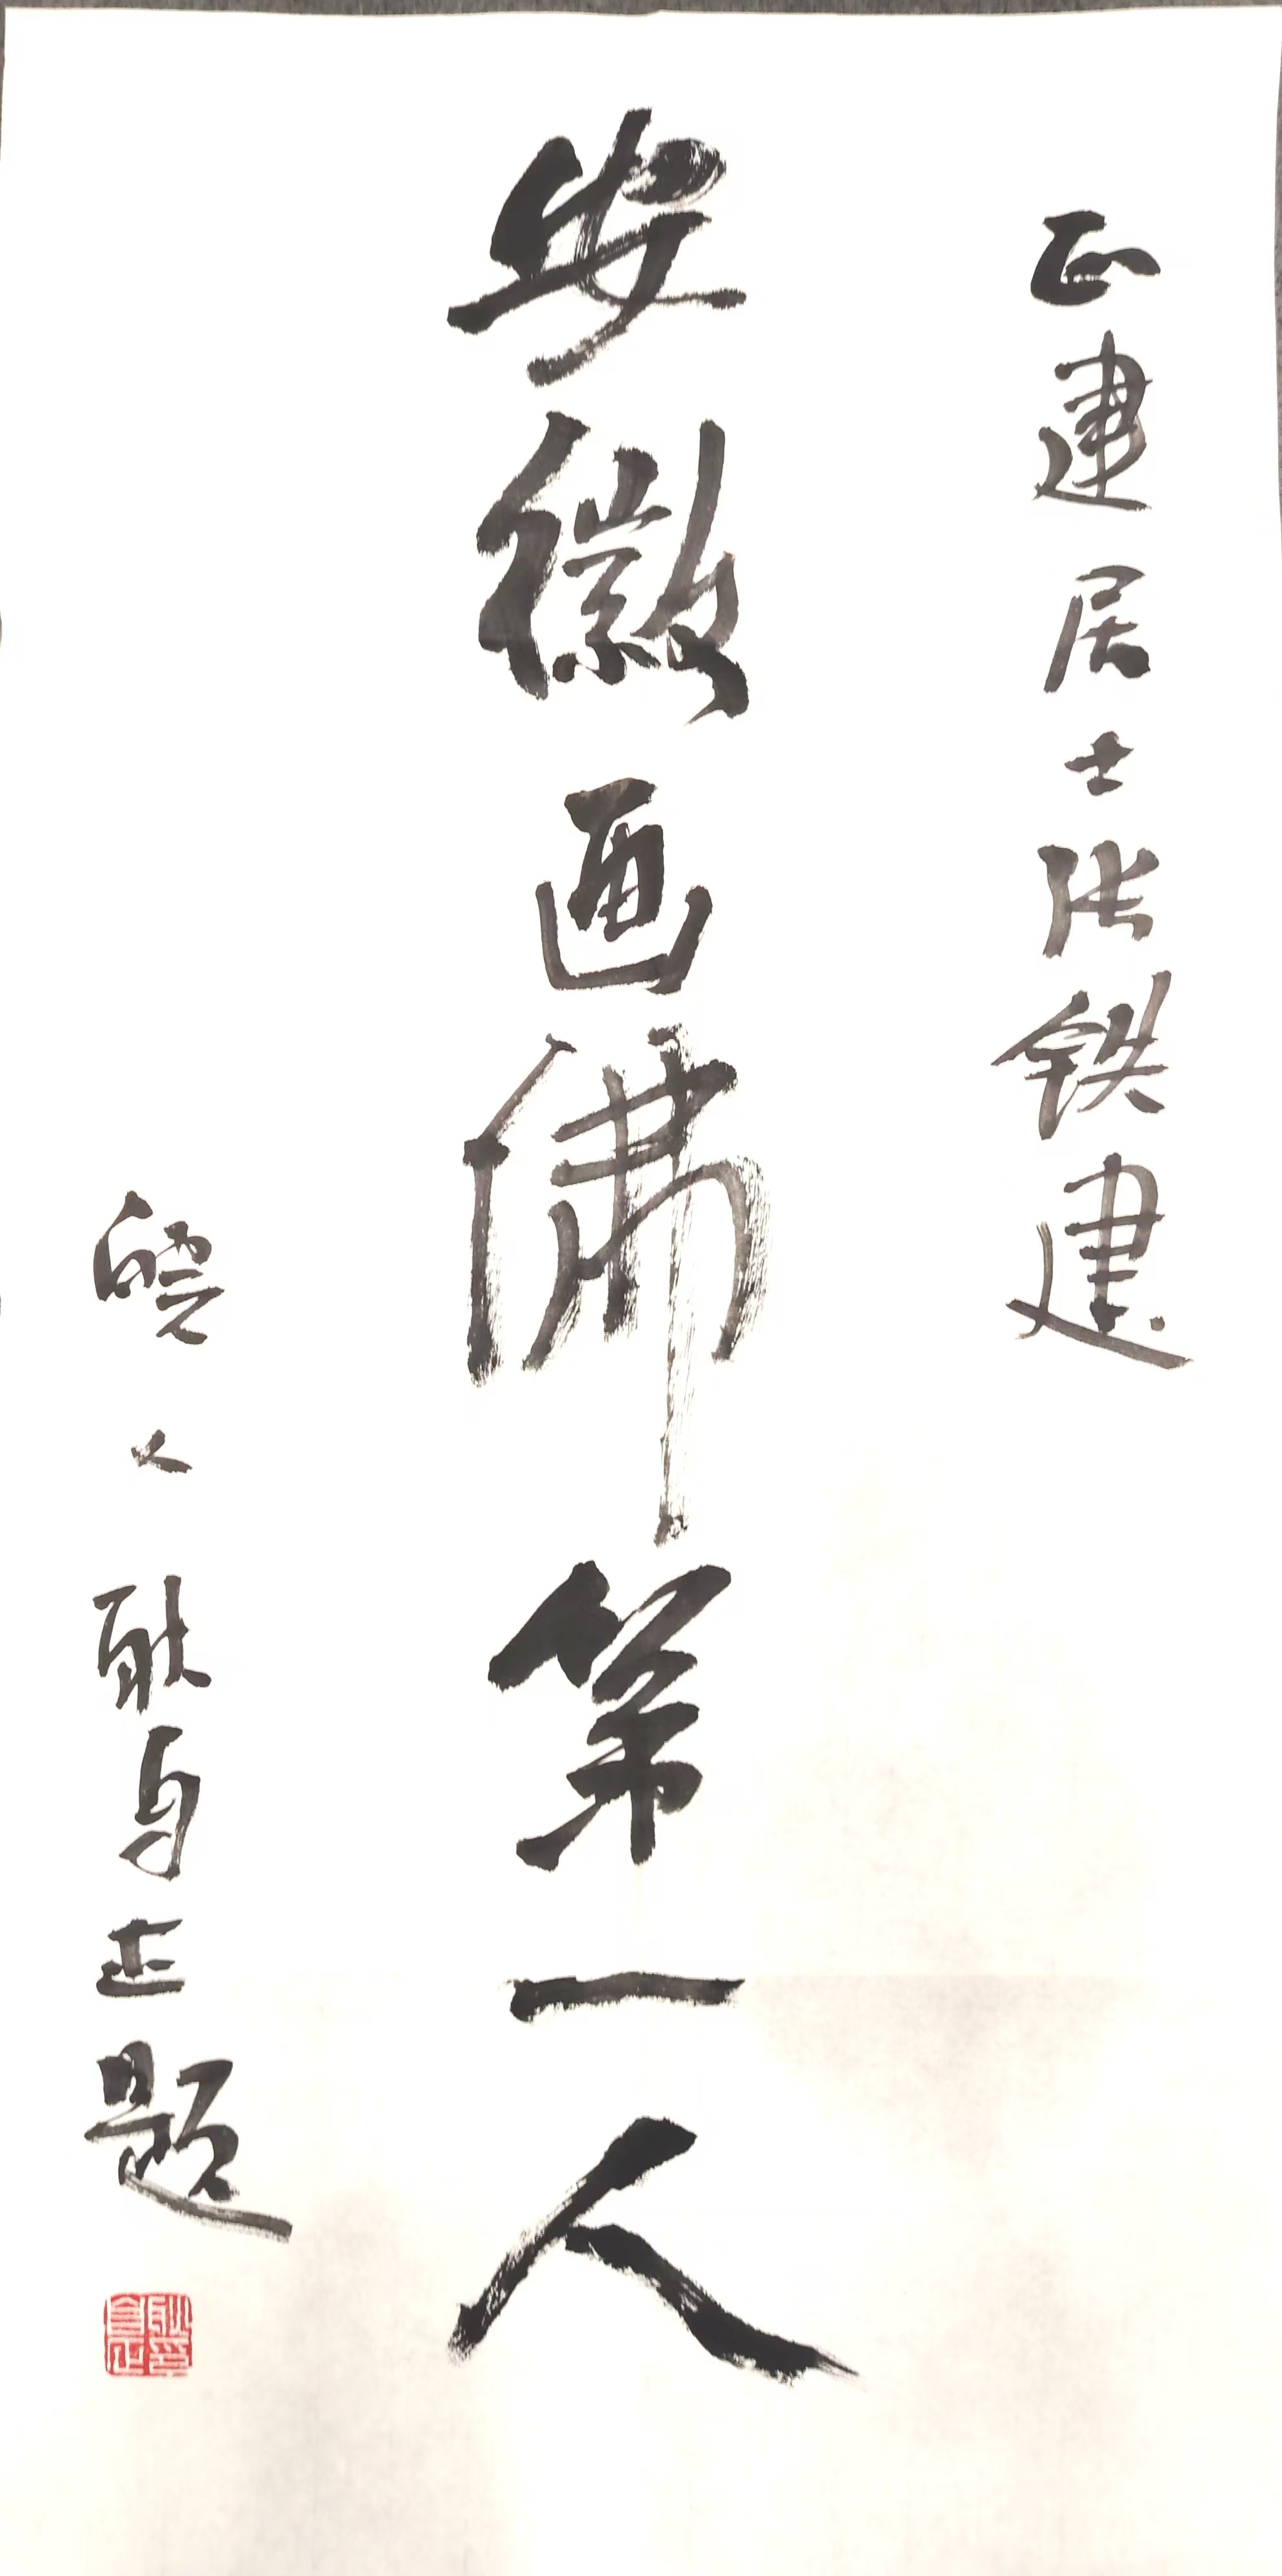 正建居士张铁建
安徽画佛第一人
皖人耿身正题